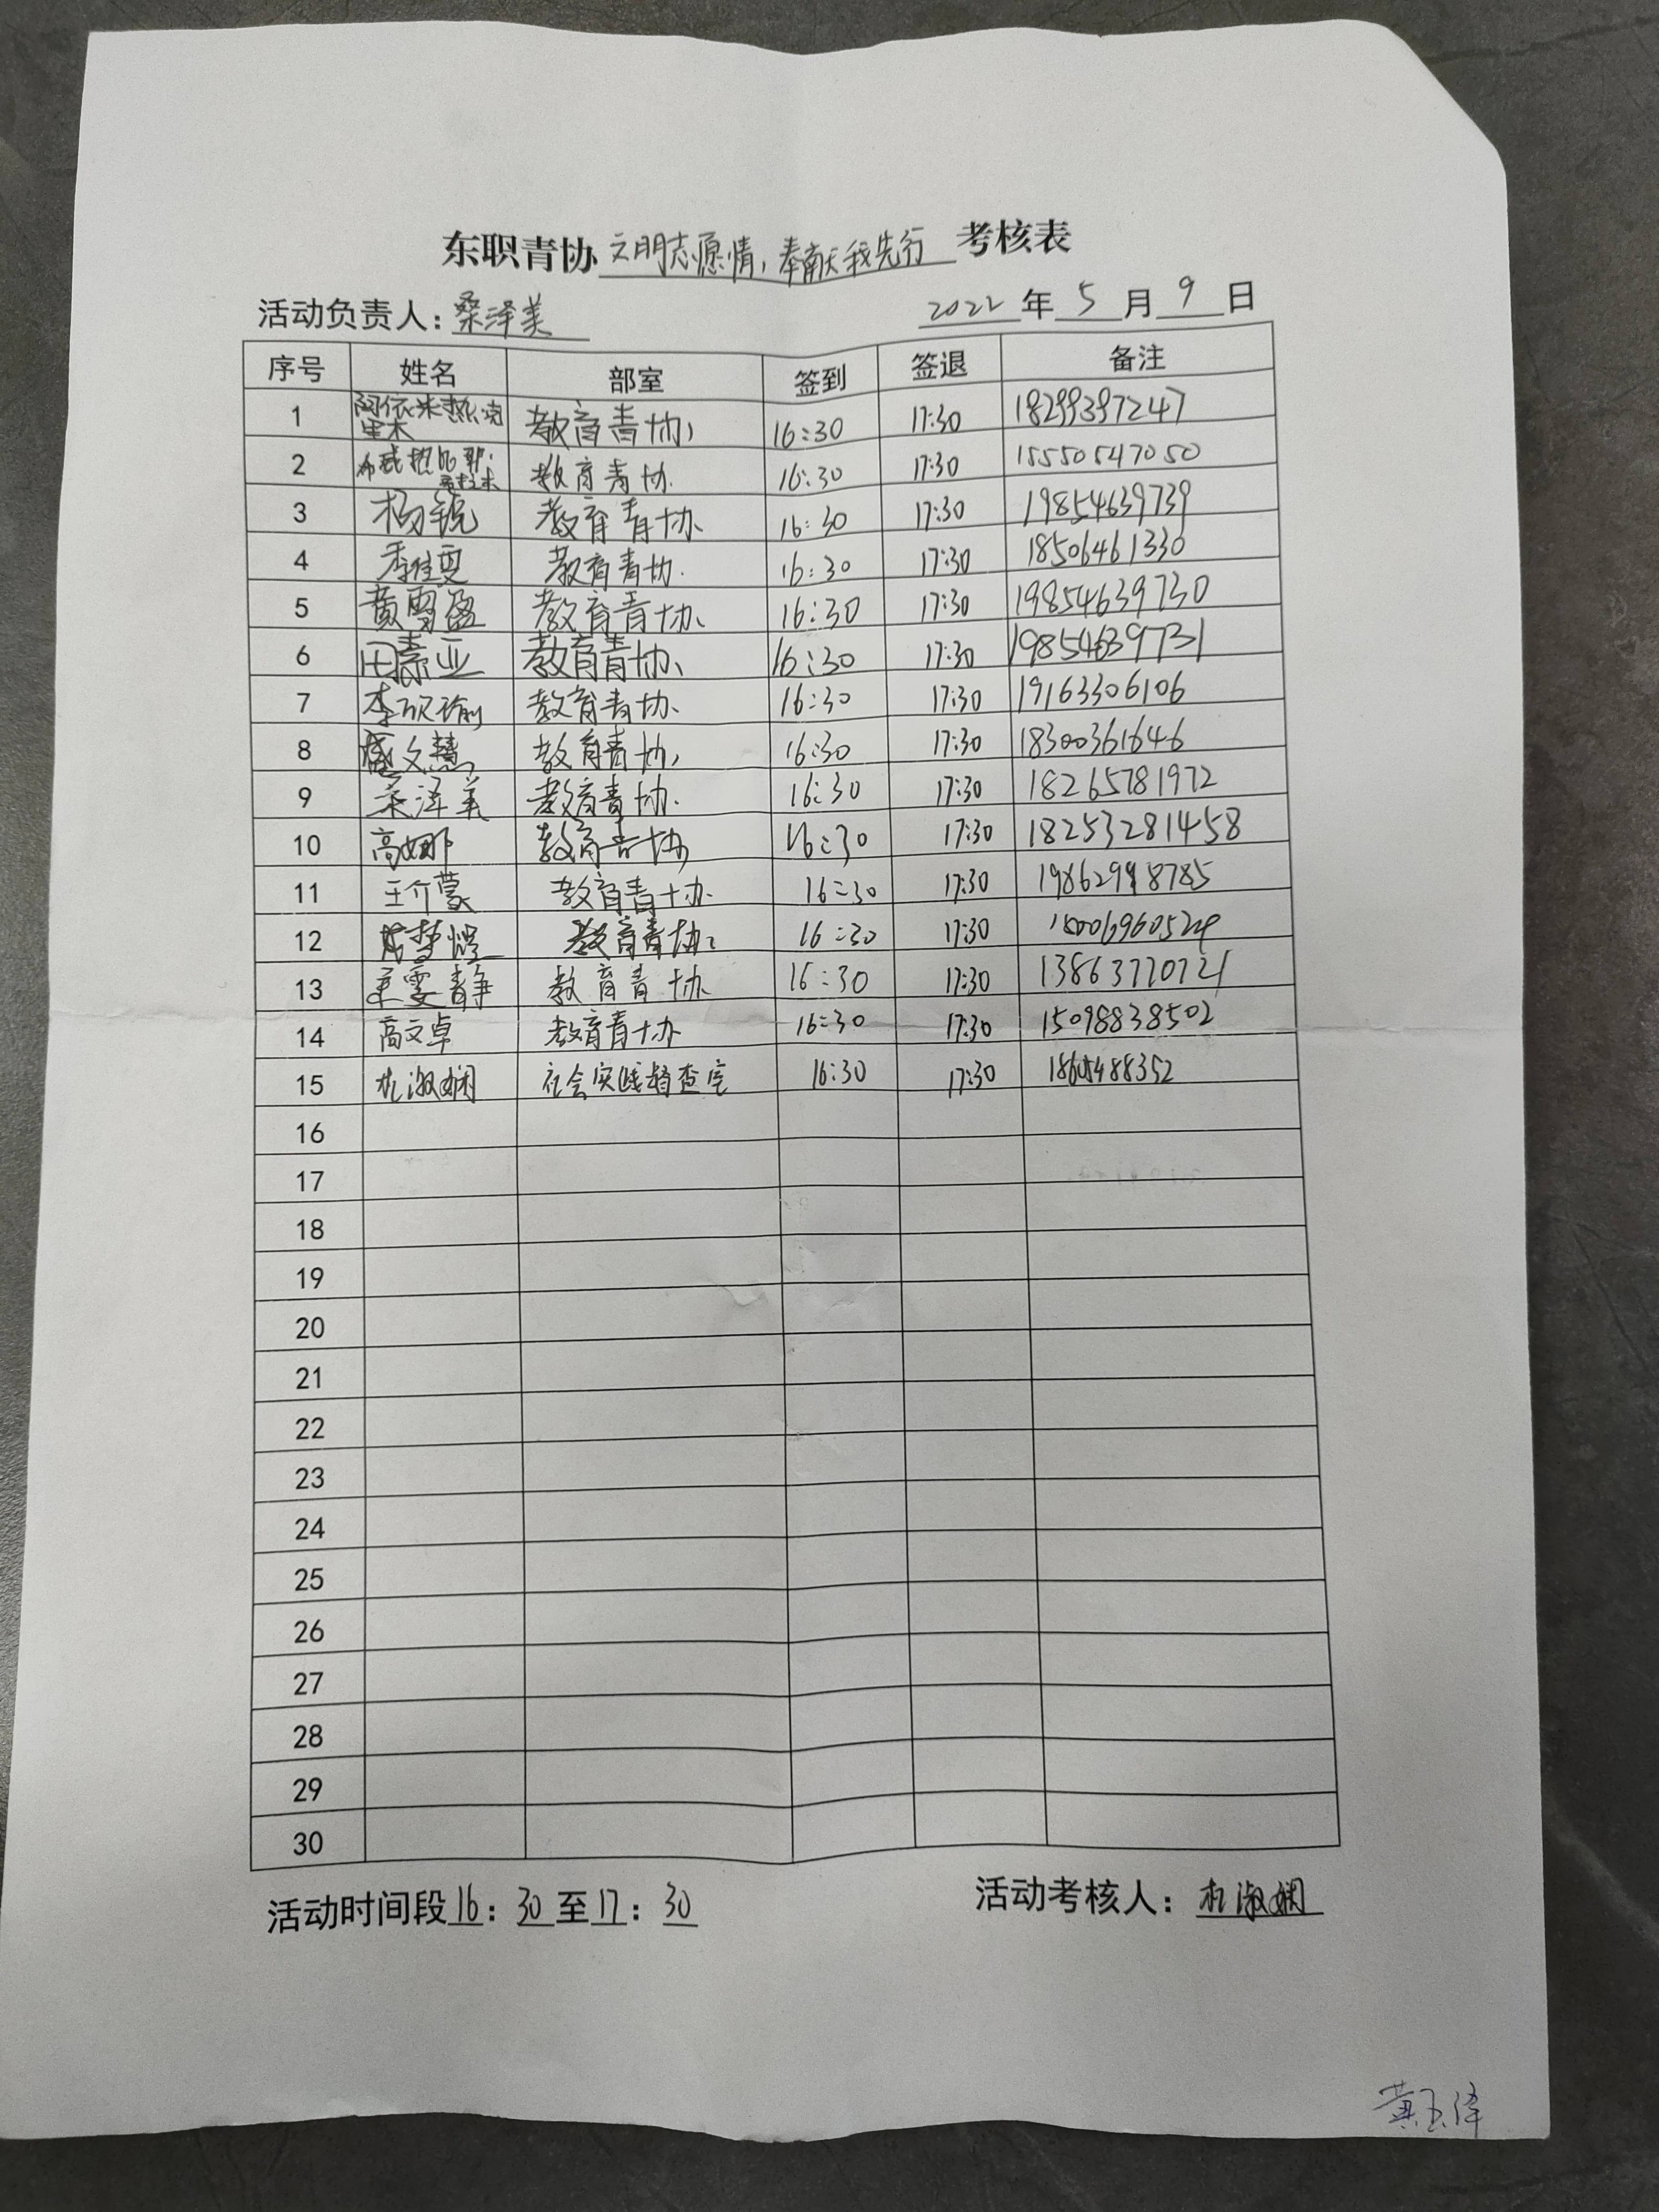 东职青协 文明志愿情，奉献我先行 考核表
活动负责人：桑泽美 2022年5月9日
序号 姓名 部室 签到 签退 备注
1 阿依米热·克里木 教育青协 16:30 17:30 18299397247
2 教育青协 16:30 17:30 15550547050
3 杨锐 教育青协 16:30 17:30 19854639739
4 季佳雯 教育青协 16:30 17:30 18506461330
5 黄雪盈 教育青协 16:30 17:30 19854639730
6 田素亚 教育青协 16:30 17:30 19854639731
7 李欣瑜 教育青协 16:30 17:30 19163306106
8 盛文慧 教育青协 16:30 17:30 18300361646
9 桑泽美 教育青协 16:30 17:30 18265781972
10 高娜 教育青协 16:30 17:30 18253281458
11 王介蒙 教育青协 16:30 17:30
12 教育青协 16:30 17:30
13 雯静 教育青协 16:30 17:30 13863770721
14 高文卓 教育青协 16:30 17:30 15098838502
15 杜淑娴 社会实践督查室 16:30 17:30
16
17
18
19
20
21
22
23
24
25
26
27
28
29
30
活动时间段16：30至17：30 活动考核人：杜淑娴
黄玉泽